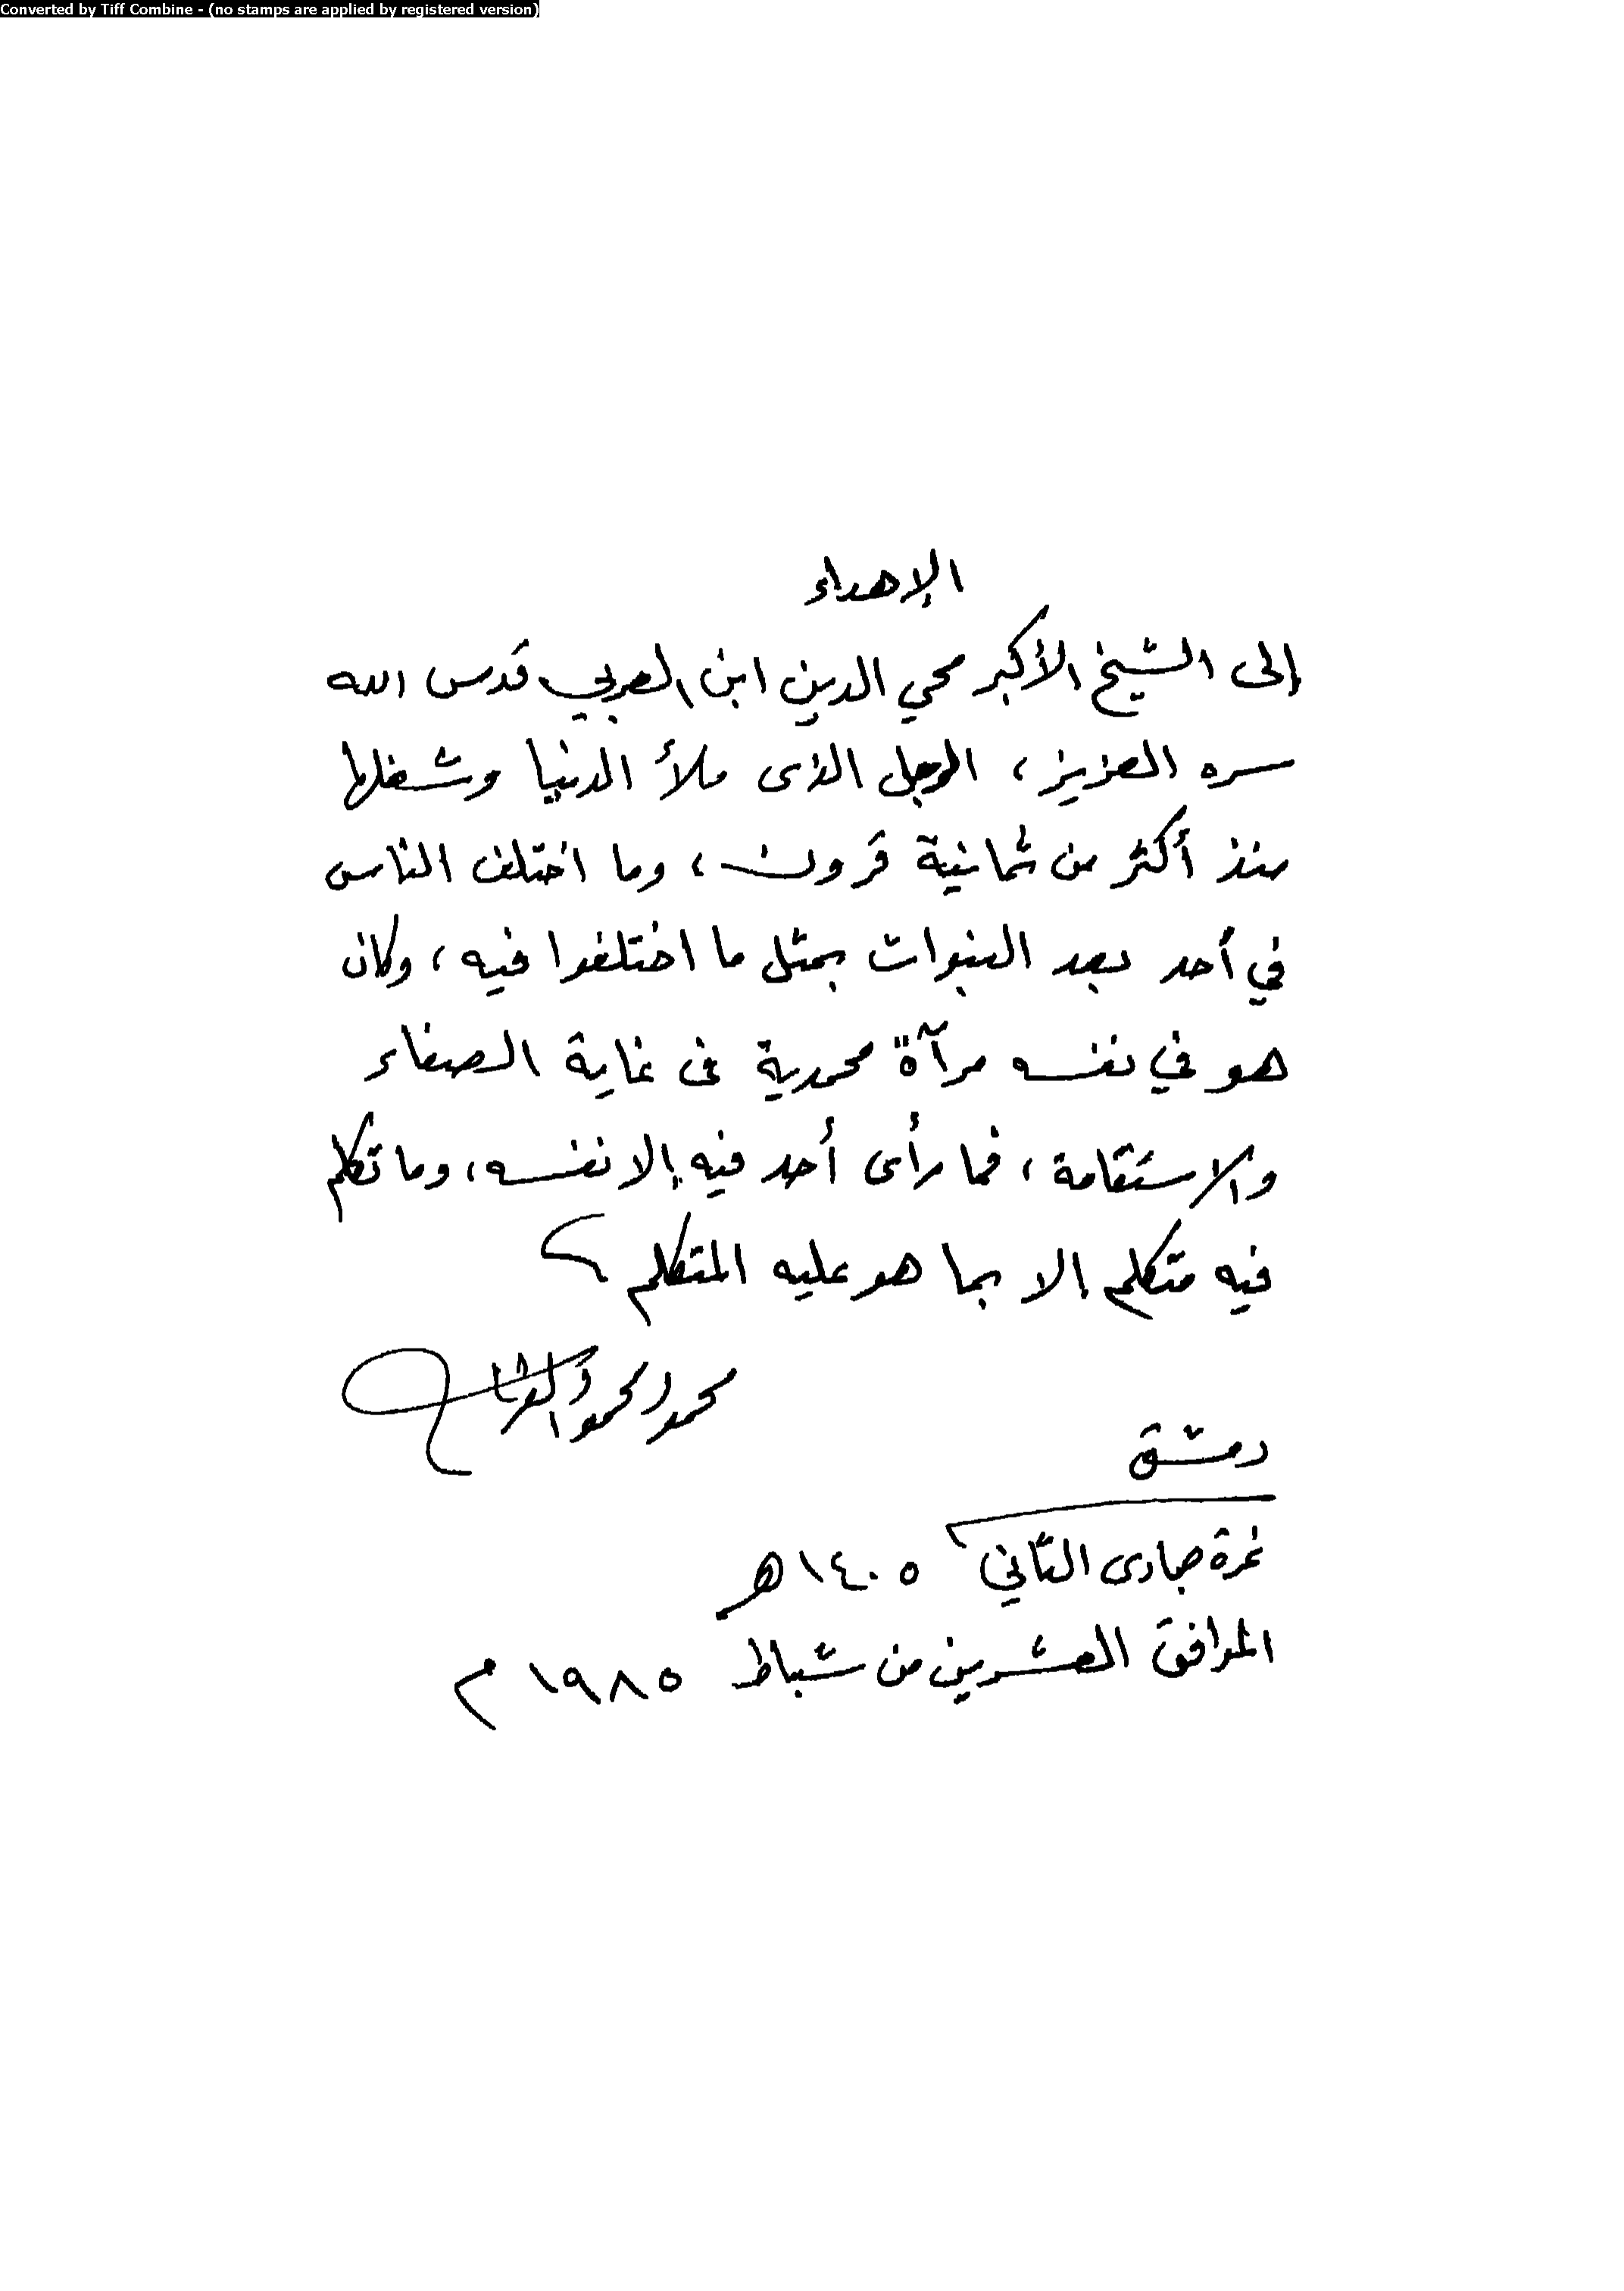 Converted by Tiff Combine - (no stamps are applied by registered version)
الإهداء
إلى الشيخ الأكبر محي الدين ابن العربي قدس الله
سره العزيز، الرجل الذى ملأ الدنيا وشغلها
منذ أكثر من ثمانية قرون، وما اختلف الناس
في أحد بعد النبوات بمثل ما اختلفوا فيه، وكان
هو في نفسه مرآة محمدية فى غاية الصفاء
والاستقامة، فما رأى أحد فيه إلا نفسه، وما تكلم
فيه متكلم إلا بما هو عليه المتكلم
محمود محمود الغراب
دمشق
غرة جمادى الثاني ١٤٠٥ هـ
الموافق العشرين من شباط ١٩٨٥ م